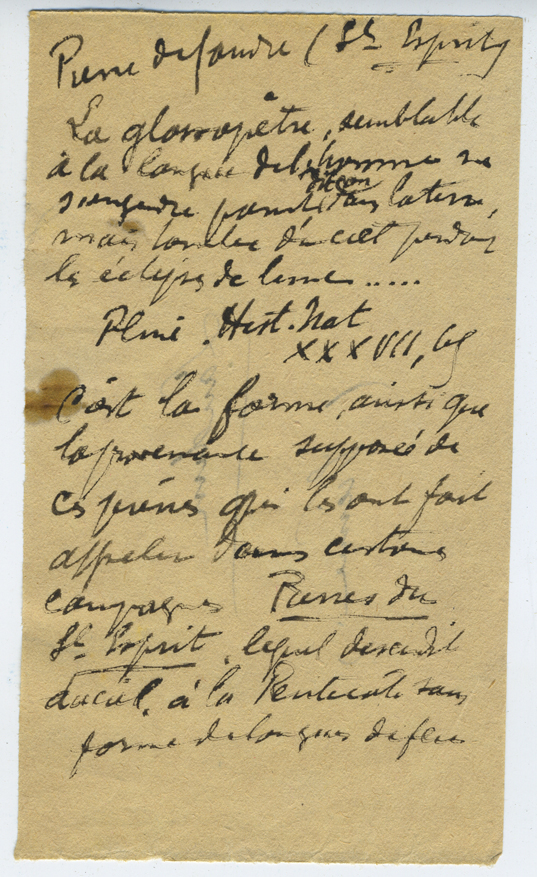 Pierre de foudre (St Esprit)
La glossopêtre, semblable
à la langue de l'homme ne
s'engendre pas dit on dans la terre,
mais tombe du ciel pendant
les éclipses de lune .....
Pline. Hist. Nat
XXXVII, 
C'est la forme, ainsi que
la provenance supposée de
ces pierres qui les ont fait
appeler dans certaines
campagnes Pierres du
St Esprit, lequel descendit
du ciel, à la Pentecôte sous
forme de langues de feu